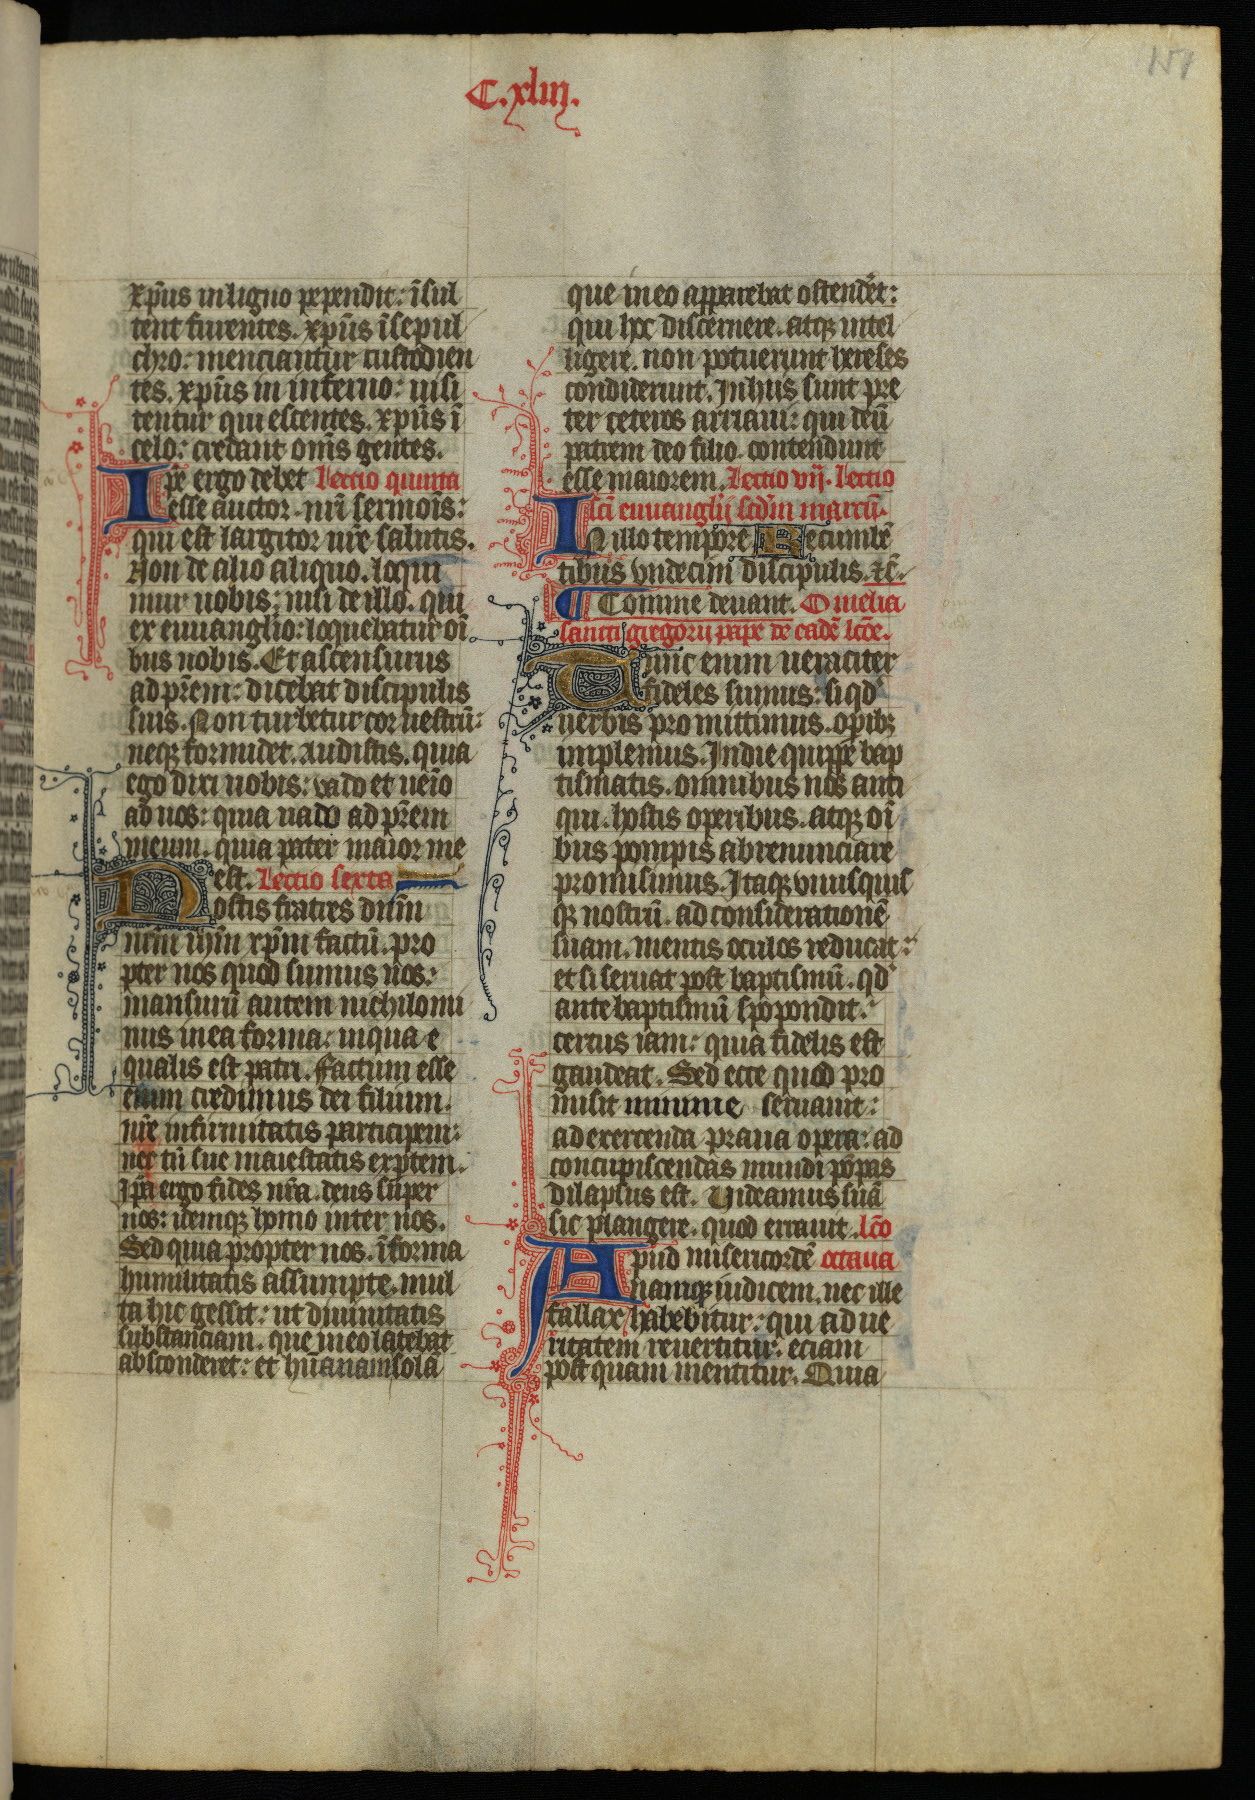 C.xliiı.
151
xp̄us in ligno pependit: īsul
tent furentes. xp̄us ī sepul
chro: menciantur custodien
tes. xp̄us in inferno: uisi
tentur quiescentes. xp̄us ī
celo: credant om̄s gentes.
Ip̄e ergo debet Lectio quinta
esse auctor nr̄i sermoīs:
qui est largitor nr̄e salutis.
Non de alio aliquo. loqui
mur uobis: nisi de illo. qui
ex euuanglio: loquebatur oī
bus nobis. Et ascensurus
ad pr̄em: dicebat discipulis
suis. Non turbetur cor uestrū:
neqꝫ formidet. Audistis. quia
ego dixi uobis: vado et ueīo
ad uos: quia uado ad pr̄em
meum. quia pater maior me
est. Lectio sexta
Nostis fratres dn̄m
nr̄m ihm̄ xp̄m factū. pro
pter nos quod sumus nos:
mansurū autem nichilomi
nus in ea forma: in qua e
qualis est patri. Factum esse
enim credimus dei filium.
nr̄e infirmitatis participem:
nec tn̄ sue maiestatis exp̄tem.
Ip̄a ergo fides nr̄a. deus super
nos: idemqꝫ homo inter nos.
Sed quia propter nos. ī forma
humilitatis assumpte. mul
ta hic gessit: ut diuinitatis
substanciam. que in eo latebat
absconderet: et hūanam solā
que in eo apparebat ostend'et:
qui hec discernere. atqꝫ intel
ligere. non potuerunt hereses
condiderunt. In hiis sunt pre
ter ceteros arriani: qui deū
patrem deo filio contendunt
esse maiorem. Lectio vij. Lectio
sc̄i euuanglij scdm̄ marcū.
In illo tempore Recumbē
tibus vndecim discipulis. ⁊c̄.
¶ Comme deuant. Omelia
sancti gregorij pape de eadē lc̄one.
Tunc enim ueraciter
fideles sumus: si qd
uerbis promittimus. opibꝫ
implemus. In die quippe bap
tismatis. omnibus nos anti
qui. hostis operibus. atqꝫ oī
bus pompis abrenunciare
promisimus. Itaqꝫ vnusquis
qꝫ nostrū. ad considerationē
suam. mentis oculos reducat:
et si seruat post baptismū. qd
ante baptismū spopondit:
certus iam: quia fidelis est
gaudeat. Sed ecce quod pro
misit minime seruauit:
ad exercenda praua opera: ad
concupiscendas mundi pōpas
dilapsus est. Uideamus si iā
sic plangere. quod errauit. lc̄o
Apud misericordē octaua
namqꝫ iudicem. nec ille
fallax habebitur: qui ad ue
ritatem reuertitur. eciam
post quam mentitur. Quia